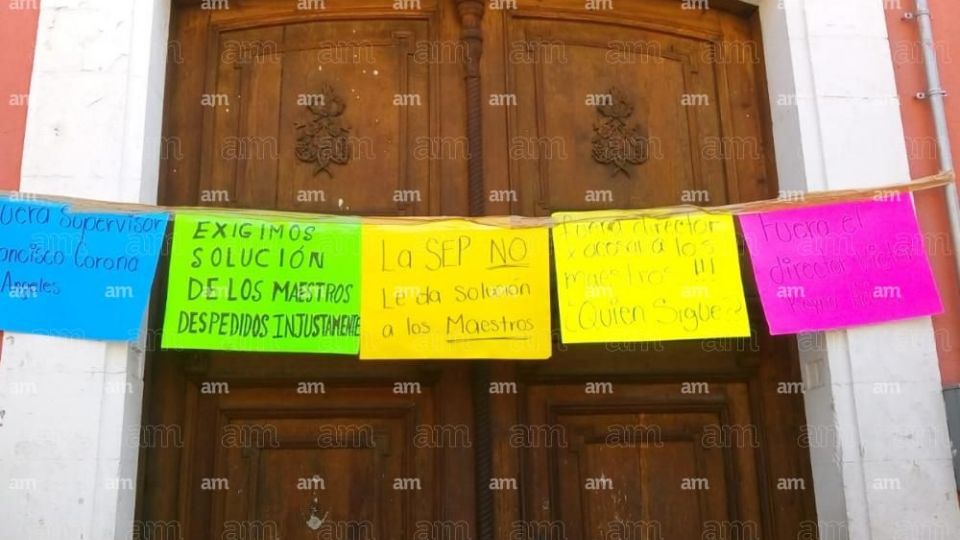 Fuera Supervisor
Francisco Corona
Angeles
EXIGIMOS
SOLUCIÓN
DE LOS MAESTROS
DESPEDIDOS INJUSTAMENTE
La SEP NO
Le da Solución
a los Maestros
Fuera director
x acosar a los
maestros !!!
¿Quien Sigue??
Fuera el
director
Reyna
am